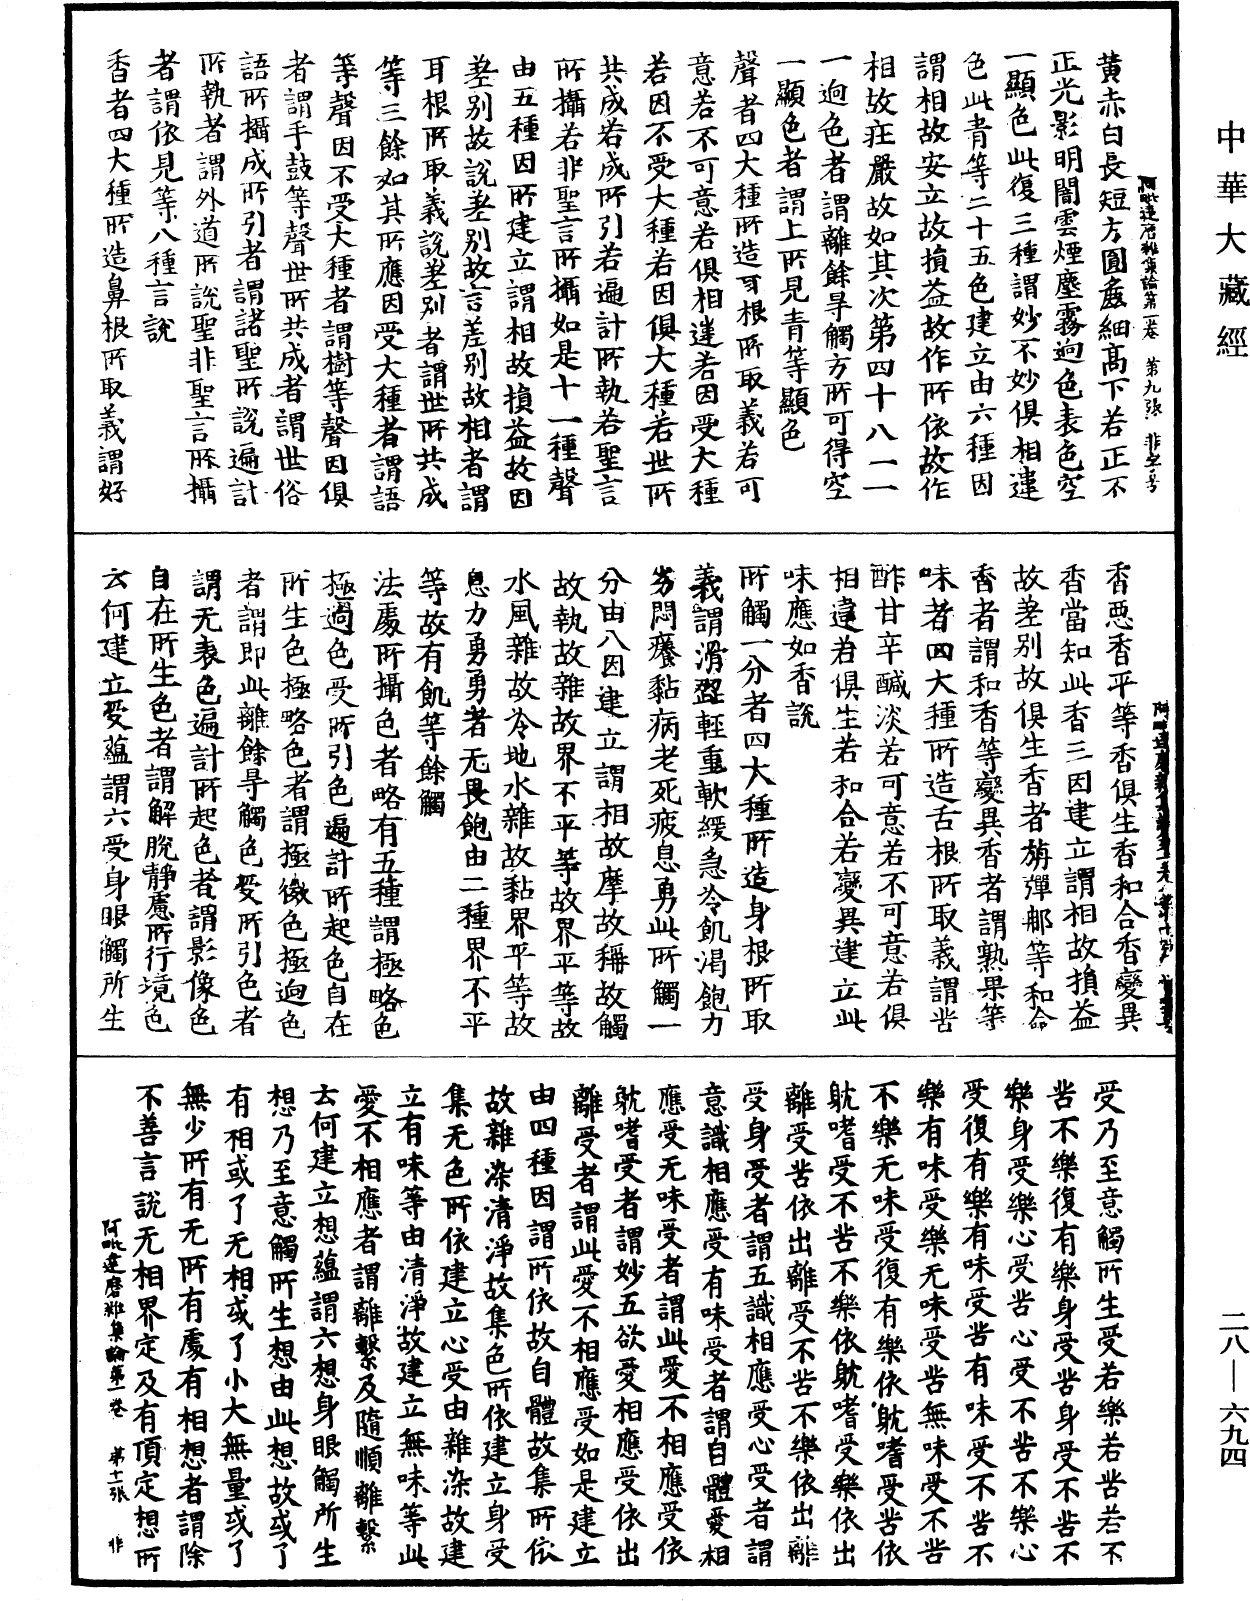 中華大藏經
黃赤白長短方圓麁細高下若正不
正光影明闇雲煙塵霧逈色表色空
一顯色此復三種謂妙不妙俱相違
色此青等二十五色建立由六種因
謂相故安立故損益故作所依故作
相故莊嚴故如其次第四十八一一
一逈色者謂離餘㝵觸方所可得空
一顯色者謂上所見青等顯色
聲者四大種所造耳根所取義若可
意若不可意若俱相違若因受大種
若因不受大種若因俱大種若世所
共成若成所引若遍計所執若聖言
所攝若非聖言所攝如是十一種聲
由五種因所建立謂相故損益故因
差別故說差別故言差別故相者謂
耳根所取義說差別者謂世所共成
等三餘如其所應因受大種者謂語
等聲因不受大種者謂樹等聲因俱
者謂手鼓等聲世所共成者謂世俗
語所攝成所引者謂諸聖所說遍計
所執者謂外道所說聖非聖言所攝
者謂依見等八種言說
香者四大種所造鼻根所取義謂好
阿毗達磨雜集論第一卷 第九張 非字号
香惡香平等香俱生香和合香變異
香當知此香三因建立謂相故損益
故差別故俱生香者旃彈那等和合
香者謂和香等變異香者謂熟果等
味者四大種所造舌根所取義謂苦
酢甘辛鹹淡若可意若不可意若俱
相違若俱生若和合若變異建立此
味應如香說
所觸一分者四大種所造身根所取
義謂滑澀輕重軟緩急冷飢渴飽力
劣悶癢黏病老死疲息勇此所觸一
分由八因建立謂相故摩故稱故觸
故執故雜故界不平等故界平等故
水風雜故冷地水雜故黏界平等故
息力勇勇者无畏飽由二種界不平
等故有飢等餘觸
法處所攝色者略有五種謂極略色
極逈色受所引色遍計所起色自在
所生色極略色者謂極微色極逈色
者謂即此離餘㝵觸色受所引色者
謂无表色遍計所起色者謂影像色
自在所生色者謂解脫靜慮所行境色
云何建立受蘊謂六受身眼觸所生
受乃至意觸所生受若樂若苦若不
苦不樂復有樂身受苦身受不苦不
樂身受樂心受苦心受不苦不樂心
受復有樂有味受苦有味受不苦不
樂有味受樂无味受苦無味受不苦
不樂无味受復有樂依躭嗜受苦依
躭嗜受不苦不樂依躭嗜受樂依出
離受苦依出離受不苦不樂依出離
受身受者謂五識相應受心受者謂
意識相應受有味受者謂自體愛相
應受无味受者謂此愛不相應受依
躭嗜受者謂妙五欲愛相應受依出
離受者謂此愛不相應受如是建立
由四種因謂所依故自體故集所依
故雜染清淨故集色所依建立身受
集无色所依建立心受由雜染故建
立有味等由清淨故建立無味等此
愛不相應者謂離繫及隨順離繫
云何建立想蘊謂六想身眼觸所生
想乃至意觸所生想由此想故或了
有相或了无相或了小大無量或了
無少所有无所有處有相想者謂除
不善言說无相界定及有頂定想所
阿毗達磨雜集論第一卷 第十一張 非
二八—六九四